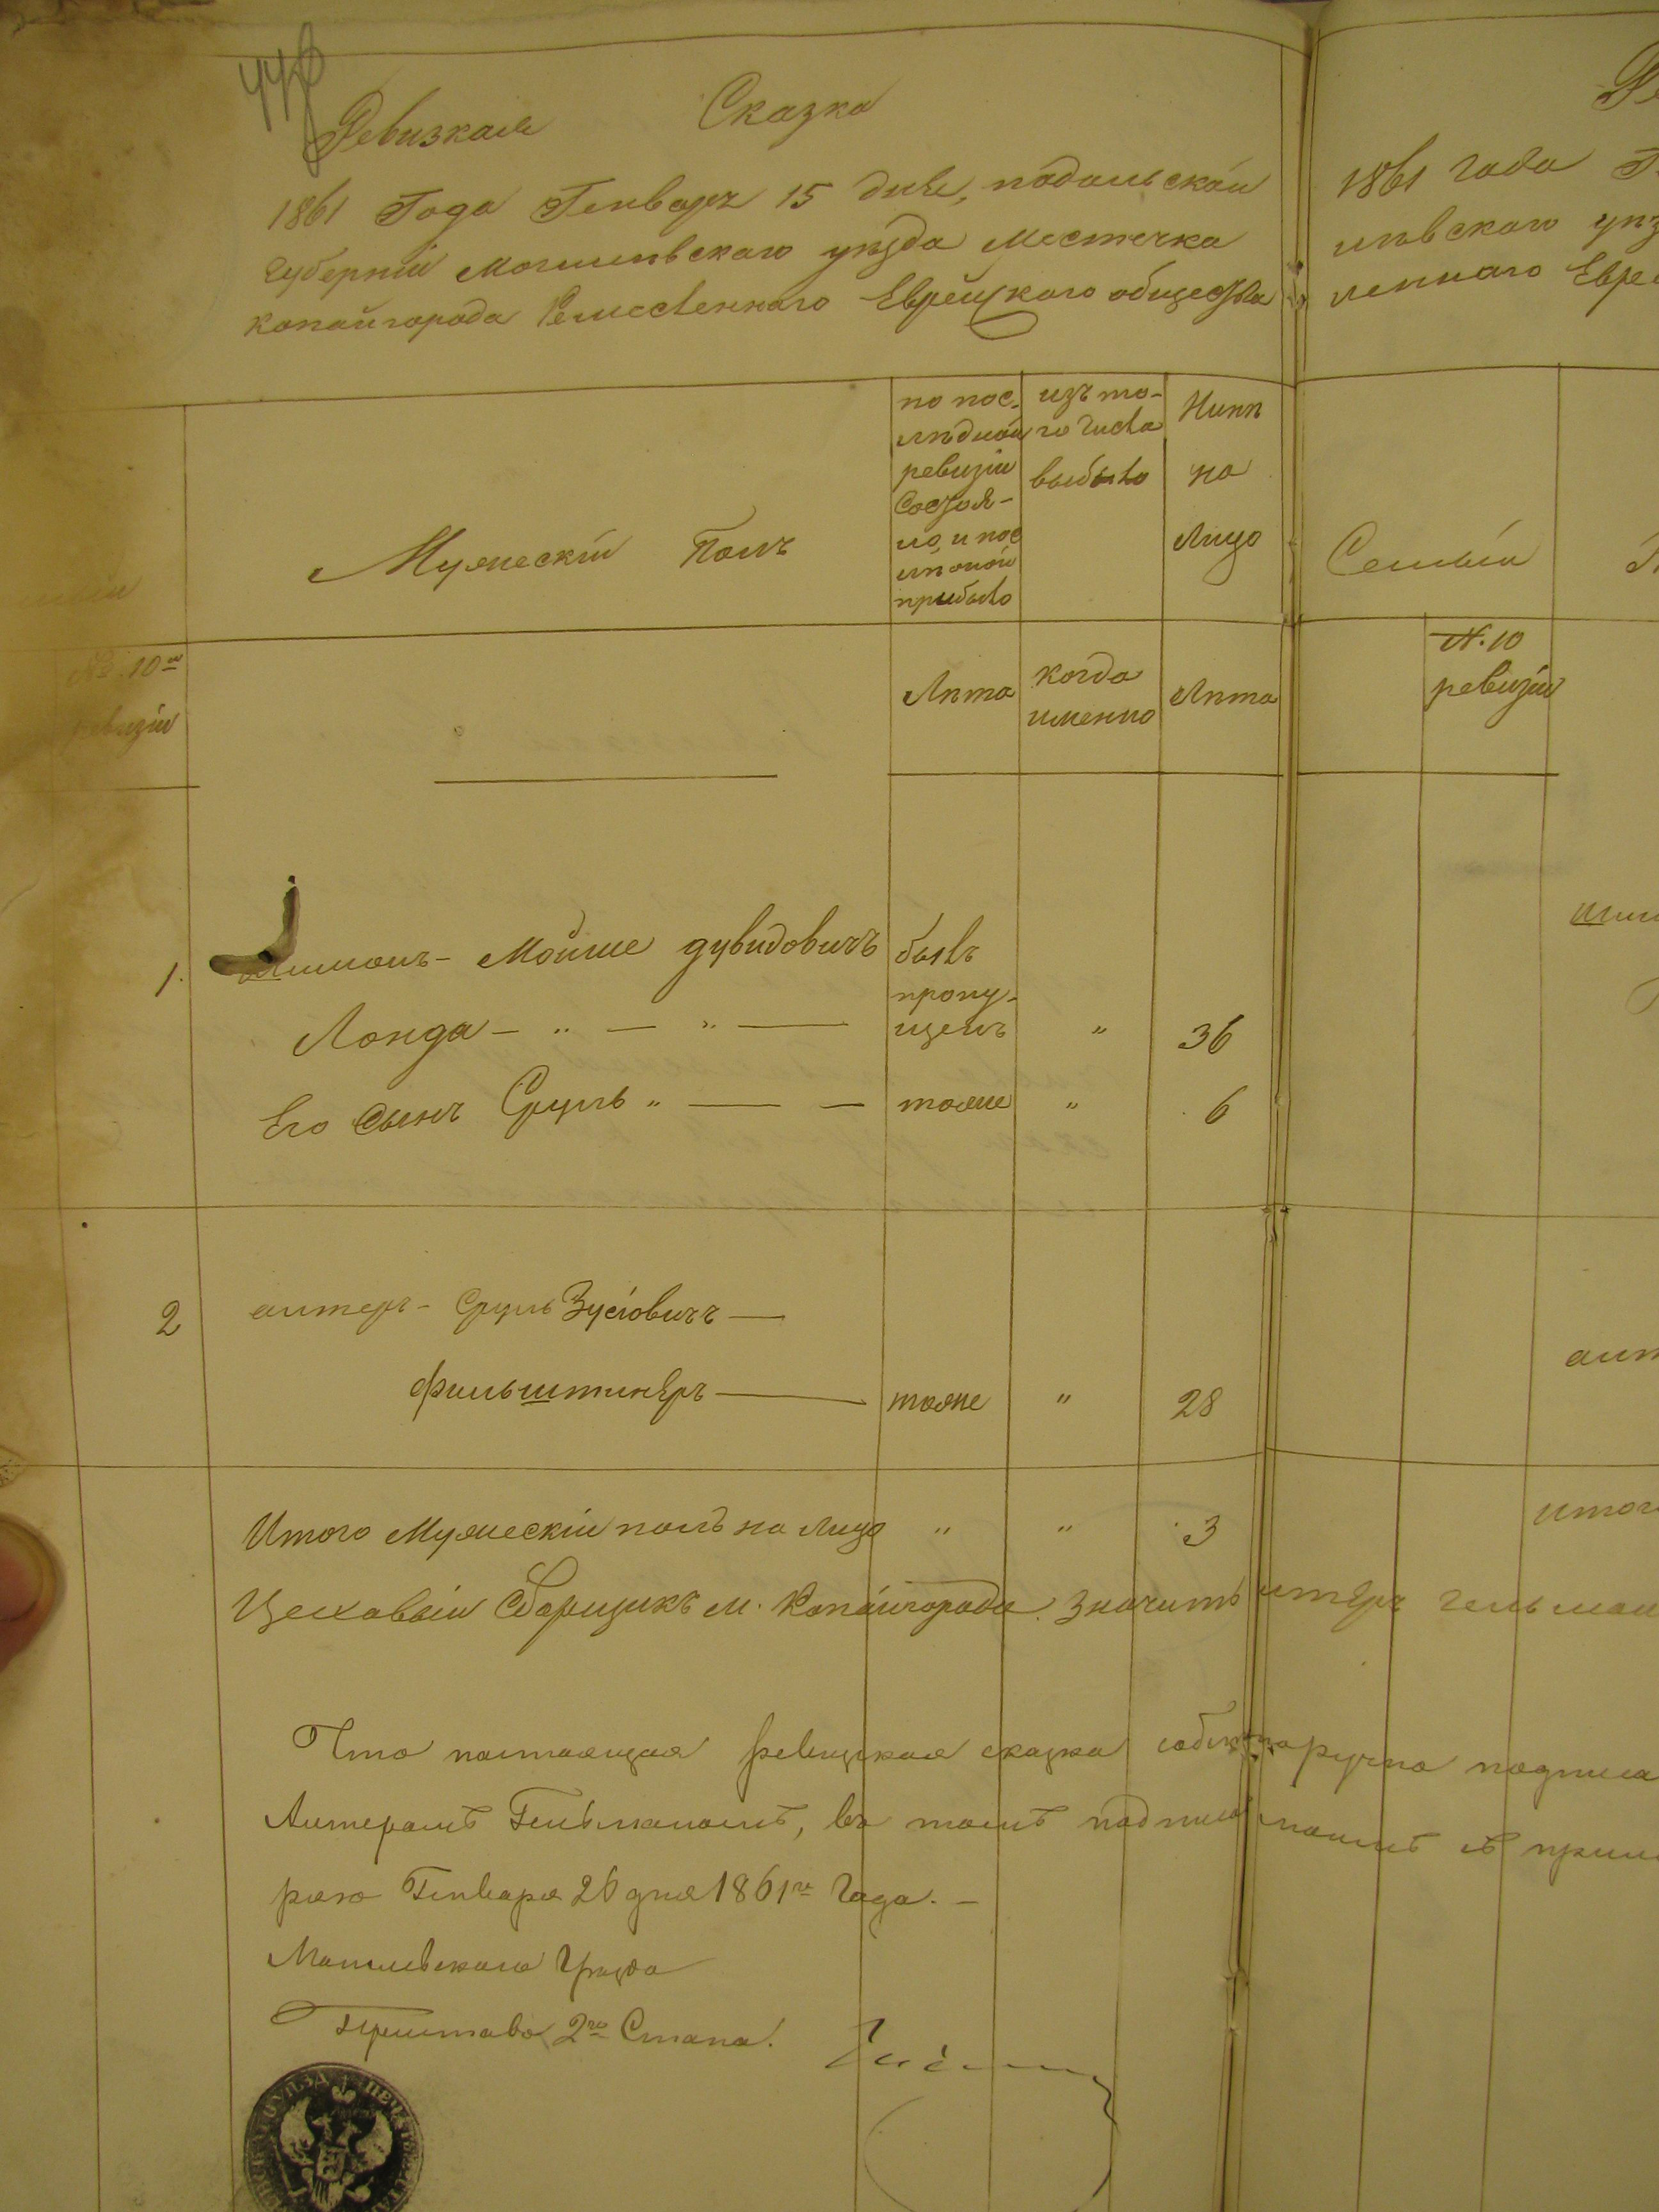 Ревизкая Сказка
1861 Года Генваръ 15 дня, подольской
Губерніи могилевскаго уѣзда местечка
копайгорода Ремесленнаго Еврейскаго общества
по пос-
лѣдной
ревизіи
состоя-
ло, и пос
лѣ оной
прибыло
изъ то-
го числа
выбыло
Нинѣ
на
Лицо
Мужескій Полъ
№ 10го
ревизіи
Лѣта
когда
именно
Лѣта
1. Мойше дувидовичъ былъ
пропу-
Лонда — „ — „ — щенъ „ 36
Его сынъ Сруль „ — — тоже „ 6
2 алтеръ - сруль Зусіовичъ —
фильштинеръ — тоже „ 28
Итого Мужескій полъ на лицо „ „ 3
Цеховый Сборщикъ м. Копайгорода. Значитъ алтеръ гельман
Что настоящая ревизская сказка собственноручно подписа
Алтеромъ Гельманомъ, въ томъ подписомъ съ прило
рою Генваря 26 дня 1861го Года. —
Могилевскаго Уѣзда
Приставъ 2го Стана.
1861 года
илевскаго уѣз
леннаго Евре
Семьи
№. 10
ревизіи
алт
итог